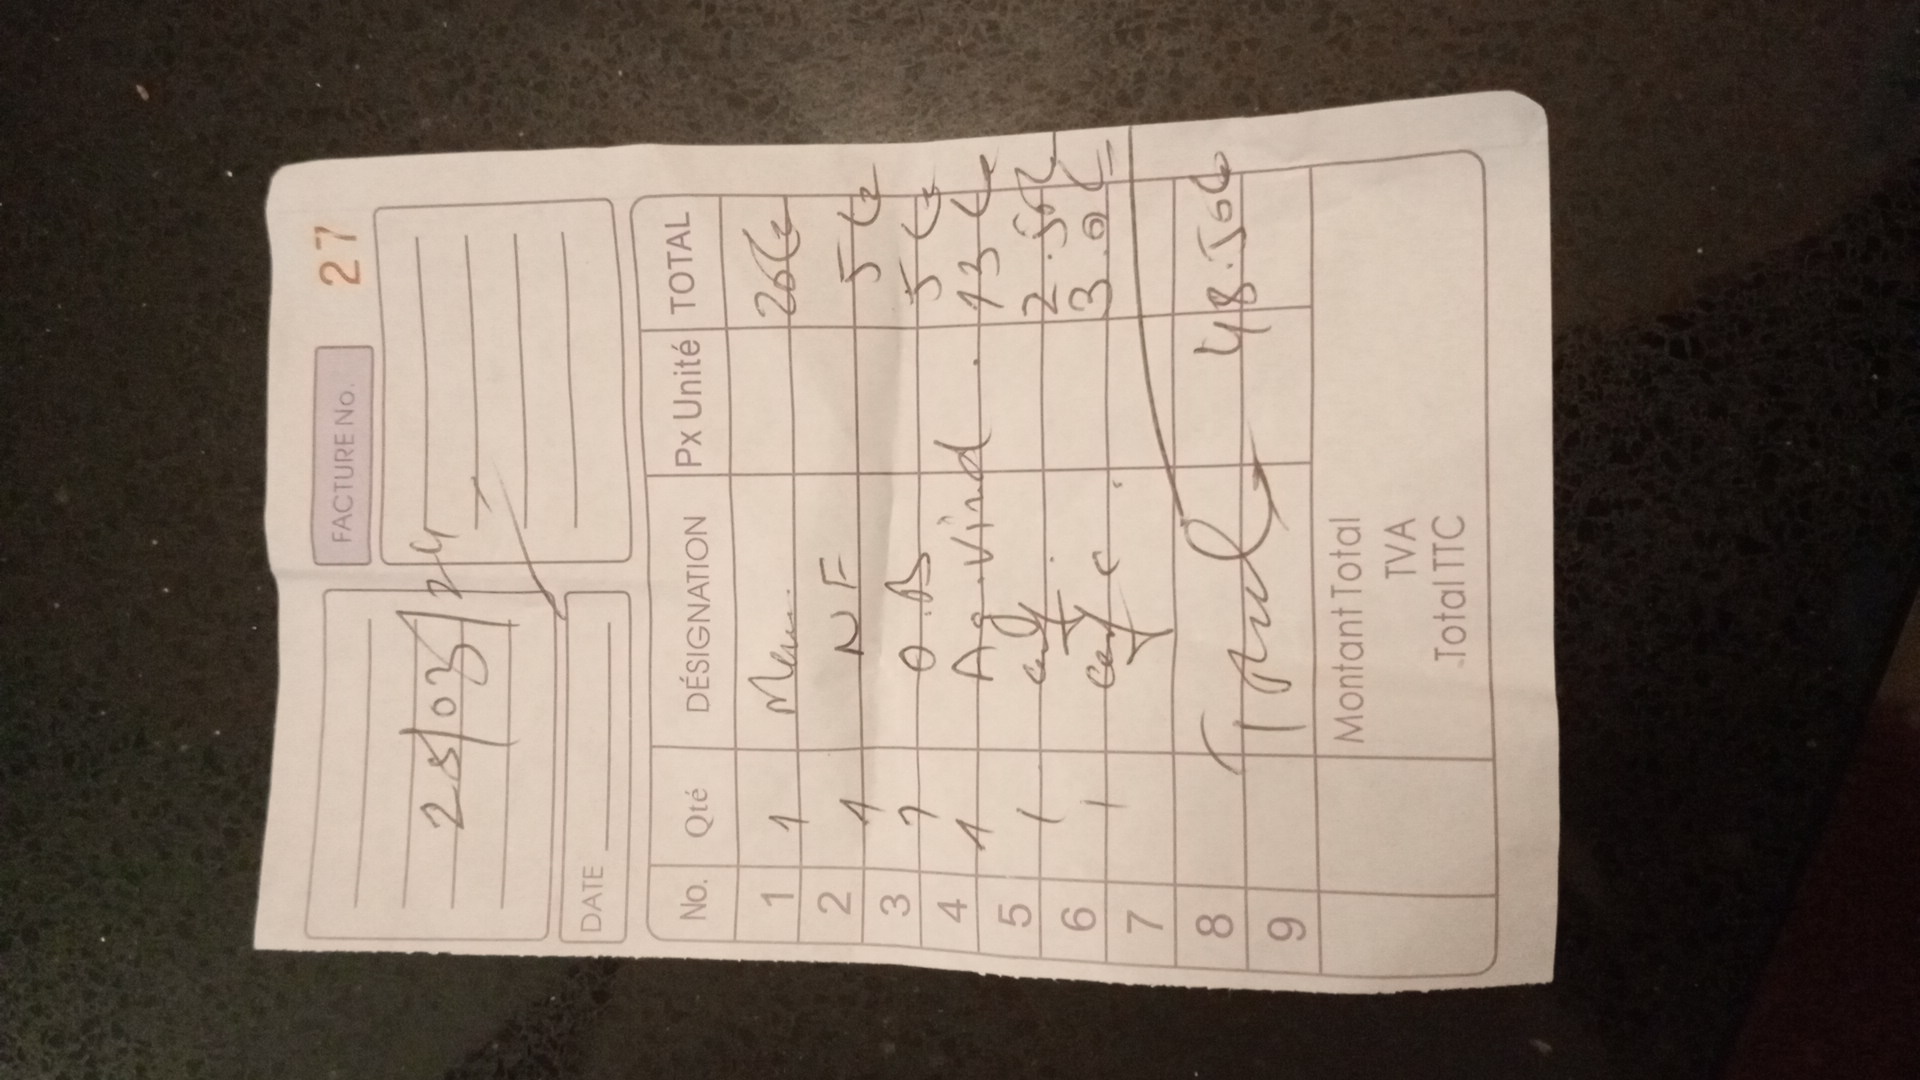 FACTURE No. 27
25/03/24
DATE
No. Qté DÉSIGNATION Px Unité TOTAL
1 1 Menu 20€
2 1 NF 5€
3 1 O.B 5€
4 1 Ag. Vind. 13€
5 1 2.50€
6 1 3.0€
7
8 48.50€
9
Montant Total
TVA
Total TTC